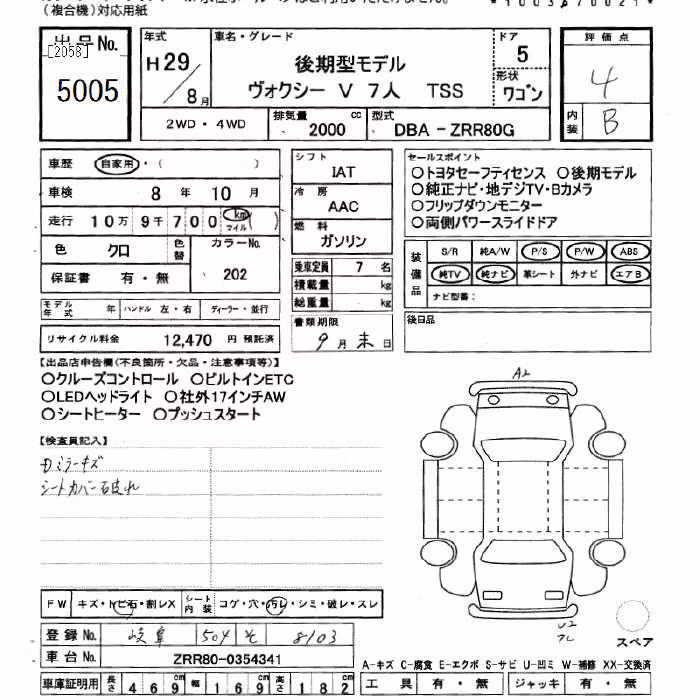 (複合機)対応用紙
出品No.
[2058]
5005
年式
H29/8月
車名・グレード
後期型モデル
ヴォクシー V 7人 TSS
ドア
5
形状
ワゴン
評価点
4
内装
B
2WD・4WD
排気量
2000 cc
型式
DBA-ZRR80G
車歴 自家用・( )
車検 8 年 10 月
走行 10万 9千 700 km マイル ( )
色 クロ 色替 カラーNo. 202
保証書 有・無
モデル年式 年 ハンドル 左・右 ディーラー・並行
リサイクル料金 12,470 円 預託済
シフト
IAT
冷房
AAC
燃料
ガソリン
乗車定員 7 名
積載量 kg
総重量 kg
書類期限
9月末日
セールスポイント
○トヨタセーフティセンス ○後期モデル
○純正ナビ・地デジTV・Bカメラ
○フリップダウンモニター
○両側パワースライドドア
装備品
S/R 純A/W P/S P/W ABS
純TV 純ナビ 革シート 外ナビ エアB
ナビ型番:
後日品
【出品店申告欄(不良箇所・欠品・注意事項等)】
○クルーズコントロール ○ビルトインETC
○LEDヘッドライト ○社外17インチAW
○シートヒーター ○プッシュスタート
【検査員記入】
Dミラーキズ
シートカバー破れ
A2
U2
スペア
FW キズ・トビ石・割レX シート内装 コゲ・穴・汚レ・シミ・破レ・スレ
登録No. 岐阜 504 そ 8103
車台No. ZRR80-0354341
車庫証明用 長さ 469cm 幅 169cm 高さ 182cm
A-キズ C-腐食 E-エクボ S-サビ U-凹ミ W-補修 XX-交換済
工具 有・無 ジャッキ 有・無